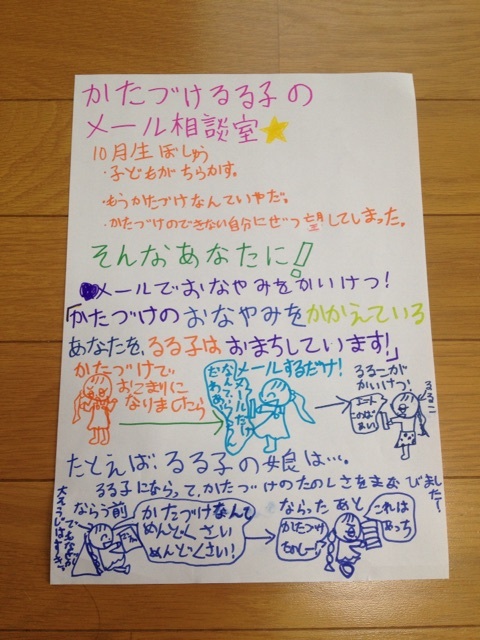 かたづけるる子の
メール相談室
10月生ぼしゅう
・子どもがちらかす。
・もうかたづけなんていやだ。
・かたづけのできない自分にぜつ望してしまった。
そんなあなたに!
メールでおなやみをかいけつ!
「かたづけのおなやみをかかえている
あなたを、るる子はおまちしています!」
かたづけで
おこまりに
なりましたら
メールするだけ!
るるこが
かいけつ!
るるこ
たとえば、るる子の娘は…。
るる子にならって、かたづけのたのしさをまなびました!
ならう前
かたづけなんて
めんどくさい
めんどくさい!
ならったあと
かたづけ
たのしー!
これは
こっち